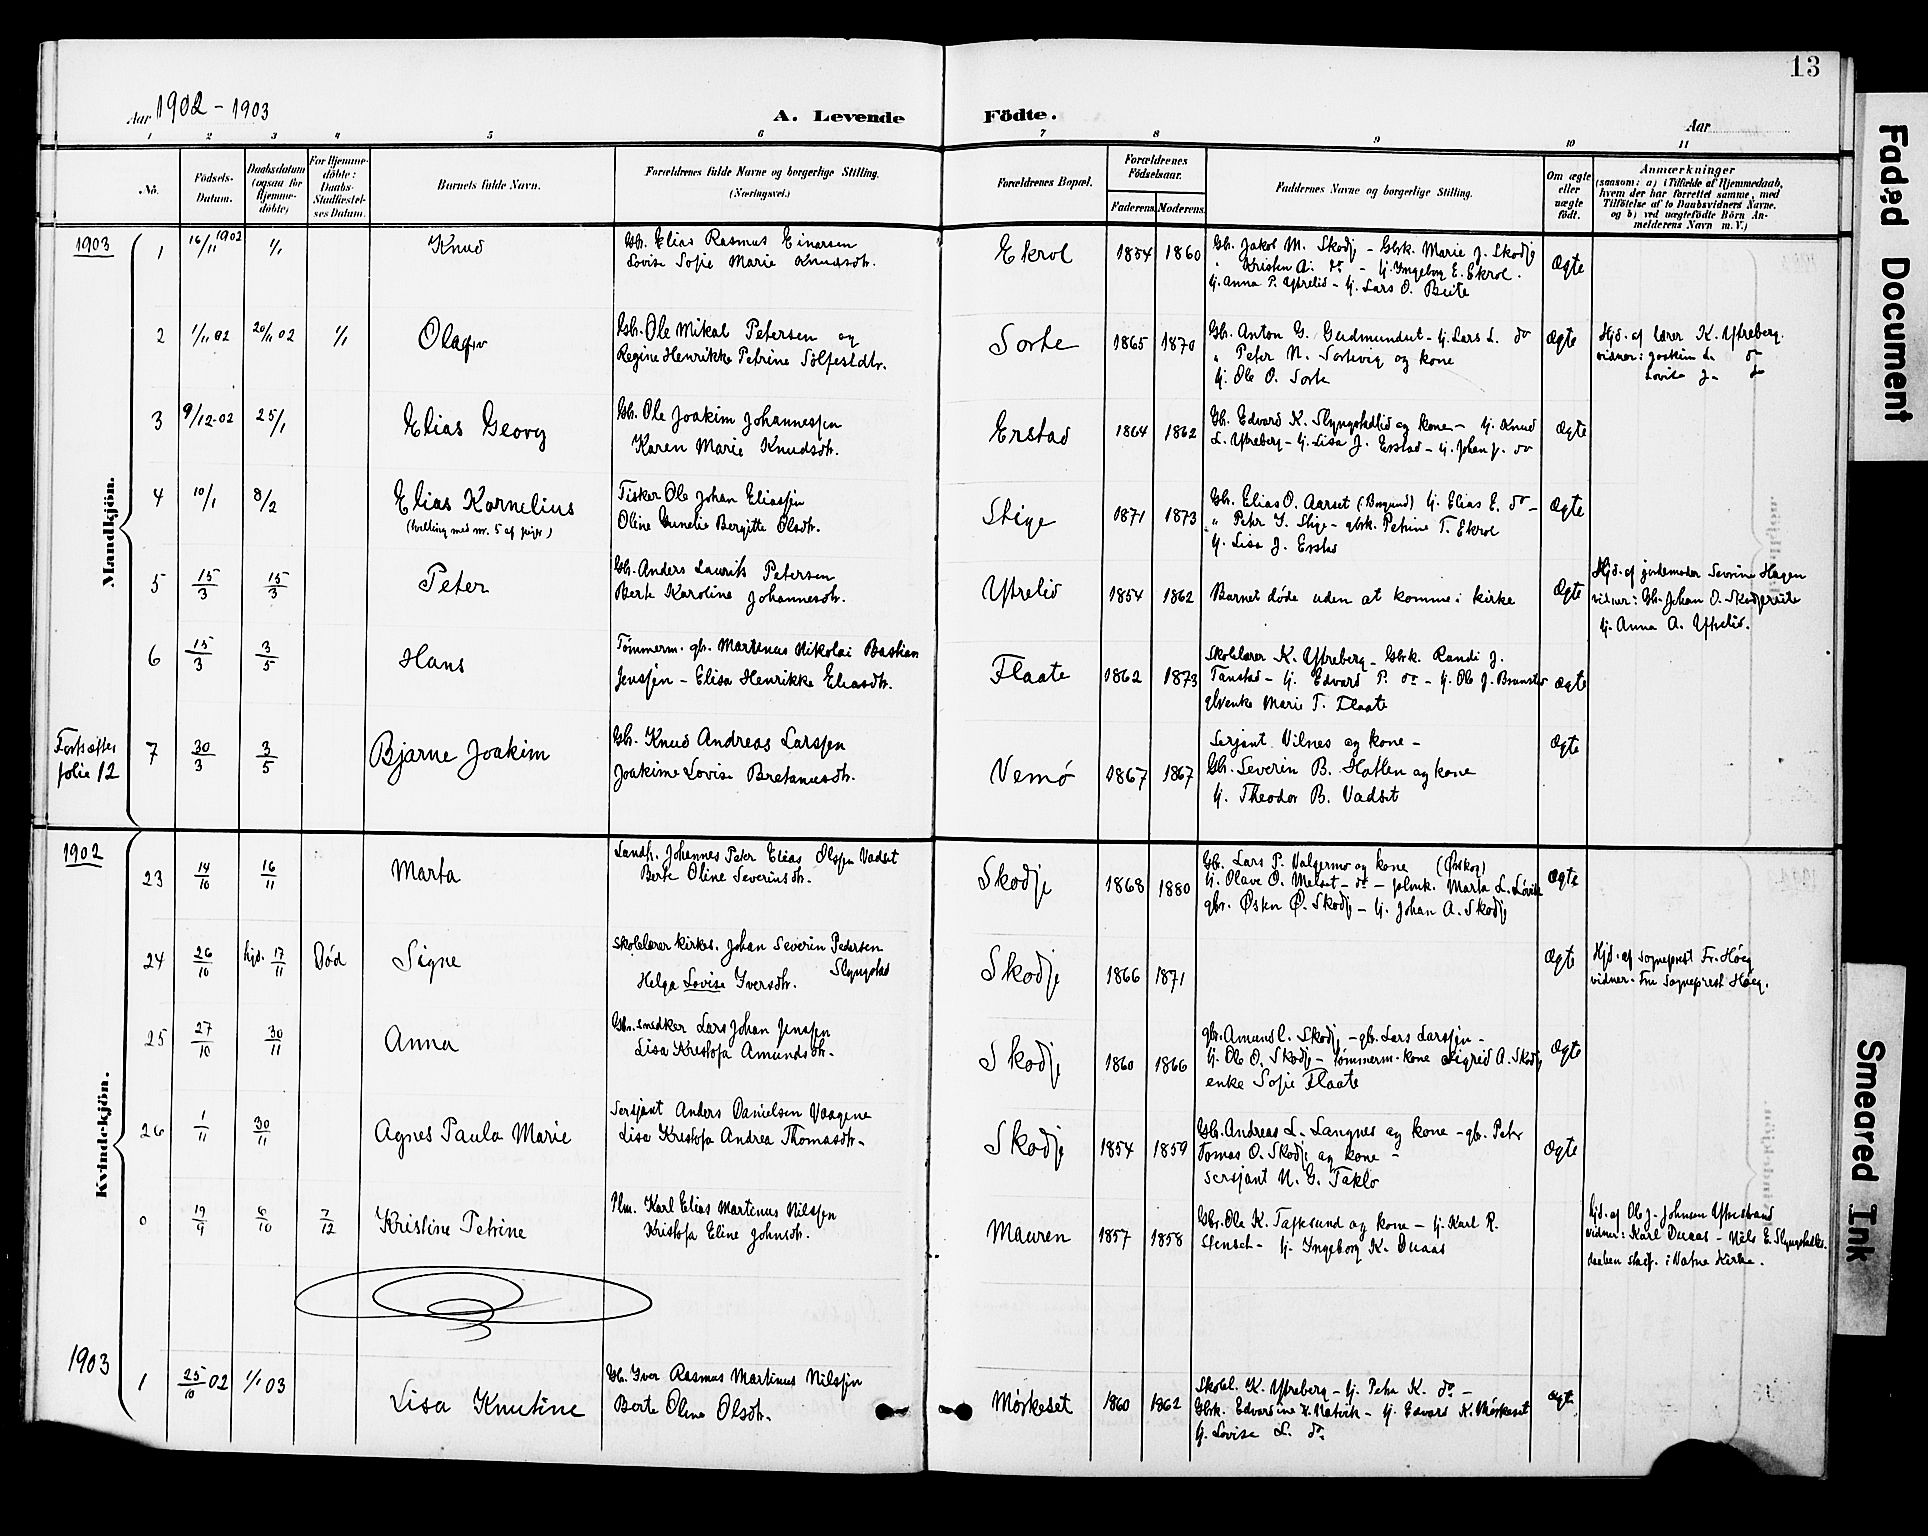 13
Aar 1902 - 1903
A. Levende Födte.
Aar
1 2 3 4 5 6 7 8 9 10 11
No.
Födsels-Datum.
Daabsdatum (ogsaa for Hjemme-döbte)
For Hjemme-döbte: Daabs-Stadfæstel-ses Datum.
Barnets fulde Navn.
Forældrenes fulde Navne og borgerlige Stilling. (Næringsvei.)
Forældrenes Bopæl.
Forældrenes Födselsaar.
Faderens Moderens
Faddernes Navne og borgerlige Stilling.
Om ægte eller uægte födt.
Anmærkninger
(saasom: a) i Tilfælde af Hjemmedaab,
hvem der har forrettet samme, med
Tilföielse af to Daabsvidners Navne.
og b) ved uægtefödte Börn An-
melderens Navn m. V.)
Mandkjön.
1903
1 16/11 1902 1/1 Knud
Gb. Elias Rasmus Einarsen
Lovise Sofie Marie Knudsdtr.
Ekrol 1854 1860
Gb. Jakob M. Skodj - Gbk. Marie J. Skodje
" Kristen A. do - Ij. Ingeborg E. Ekrol.
Ij. Anna P. Ytrelid - Ij. Lars O. Beite
Ægte
2 1/11 02 20/11 02 1/1 Olaf
Gb. Ole Mikal Petersen og
Regine Henrikke Petrine Solfestdtr.
Sorte 1865 1870
Gb. Anton G. Gudmundset - Ij. Lars L. do
" Peter N. Sortevig og kone
Ij. Ole O. Sorte
Ægte
Hjd. af lærer K. Ytreberg.
vidner: Joakim L. do
Lovise J. do
3 9/12-02 25/1 Elias Georg
Gb. Ole Joakim Johannessen
Karen Marie Knudsdtr.
Erstad 1864 1862
Gb. Edvard K. Slyngstadlid og kone - Ij. Knud
L. Ytreberg - Ij. Lisa J. Erstad - Ij. Johan J. do
Ægte
4 10/1 8/2 Elias Kornelius
(tvilling med nr. 5 af piger)
Fisker Ole Johan Eliassen
Oline Gunelie Bergitte Olsdtr.
Stige 1871 1873
Gb. Elias O. Aarset (Borgund) Ij. Elias E. do -
" Peter I. Stige - gbk. Petrine T. Ekrol
Ij. Lisa J. Erstad
Ægte
5 15/3 15/3 Peter
Gb. Anders Laurits Petersen
Berte Karoline Johannesdtr.
Ytrelid 1854 1862
Barnet døde uden at komme i kirke
Ægte
Hjd. af jordemoder Sevrine Hagen
vidner: Gb. Johan O. Skodjereite
Ij. Anna A. Ytrelid.
6 15/3 3/5 Hans
Tømmerm. gb. Martinus Nikolai Bastian
Jenssen - Elisa Henrikke Eliasdtr.
Flaate 1862 1873
Skolelærer K. Ytreberg - Gbk. Randi J.
Tanstad - Ij. Edvard P. do - Ij. Ole J. Branstad
gbenke Marie T. Flaate
Ægte
Fortsættes
folie 12
7 30/3 3/5 Bjarne Joakim
Gb. Knud Andreas Larssen
Joakime Lovise Bretanusdtr.
Nemö 1867 1867
Serjant Vilnes og kone -
Gb. Severin B. Hatlen og kone
Ij. Theodor B. Vadset
Ægte
Kvindekjön.
1902
23 14/10 16/11 Marta
Landh. Johannes Peter Elias Olssen Vadset
Berte Oline Severinsdtr.
Skodje 1868 1880
Gb. Lars P. Valgermo og kone (Ørskog)
Ij. Olave O. Melset - do - plenk. Marta L. Løvik
gbr. Østen O. Skodj - Ij. Johan A. Skodj
Ægte
24 26/10 hjd. 17/11 Død Signe
Skolelærer kirkes. Johan Severin Pedersen
Slyngstad
Helga Lovise Iversdtr.
Skodje 1866 1871
Ægte
Hjd. af sogneprest Fr. Höeg
vidner. Fru sogneprest Höeg.
25 27/10 30/11 Anna
Gbr. snedker Lars Johan Jenssen
Lisa Kristofa Amundsdtr.
Skodje 1860 1866
gbr. Amund L. Skodj - gb. Lars Larssen -
Ij. Ole O. Skodj - tømmerm. kone Sigrid A. Skodj
enke Sofie Flaate
Ægte
26 1/11 30/11 Agnes Paula Marie
Sersjant Anders Danielsen Vaagene
Lisa Kristofa Andrea Thomasdtr.
Skodje 1854 1859
Gb. Andreas L. Langnes og kone - gb. Peter
Tomas O. Skodj og kone -
sersjant N. G. Taklo
Ægte
0 19/9 6/10 7/12 Kristine Petrine
Plm. Karl Elias Martinus Nilssen
Kristofa Eline Johnsdtr.
Mauren 1857 1858
Gbr. Ole K. Tafsund og kone - Ij. Karl R.
Stenset - Ij. Ingeborg K. Duaas
hjd. af Ole J. Johnsen Ytrestrand
vidner: Karl Duaas - Nils E. Slyngstadli.
daaben stadf. i Vatne Kirke.
1903
1 25/10 02 1/1 03 Lisa Knutine
Gb. Iver Rasmus Martinus Nilssen
Berte Oline Olsdtr.
Mørkeset 1860 1862
Skolel. K. Ytreberg - Ij. Petra K. do -
Gbk. Edvardine K. Natvik - Ij. Edvard K. Mørkeset
Ij. Lovise L. do
Ægte
Faded Document
Smeared Ink